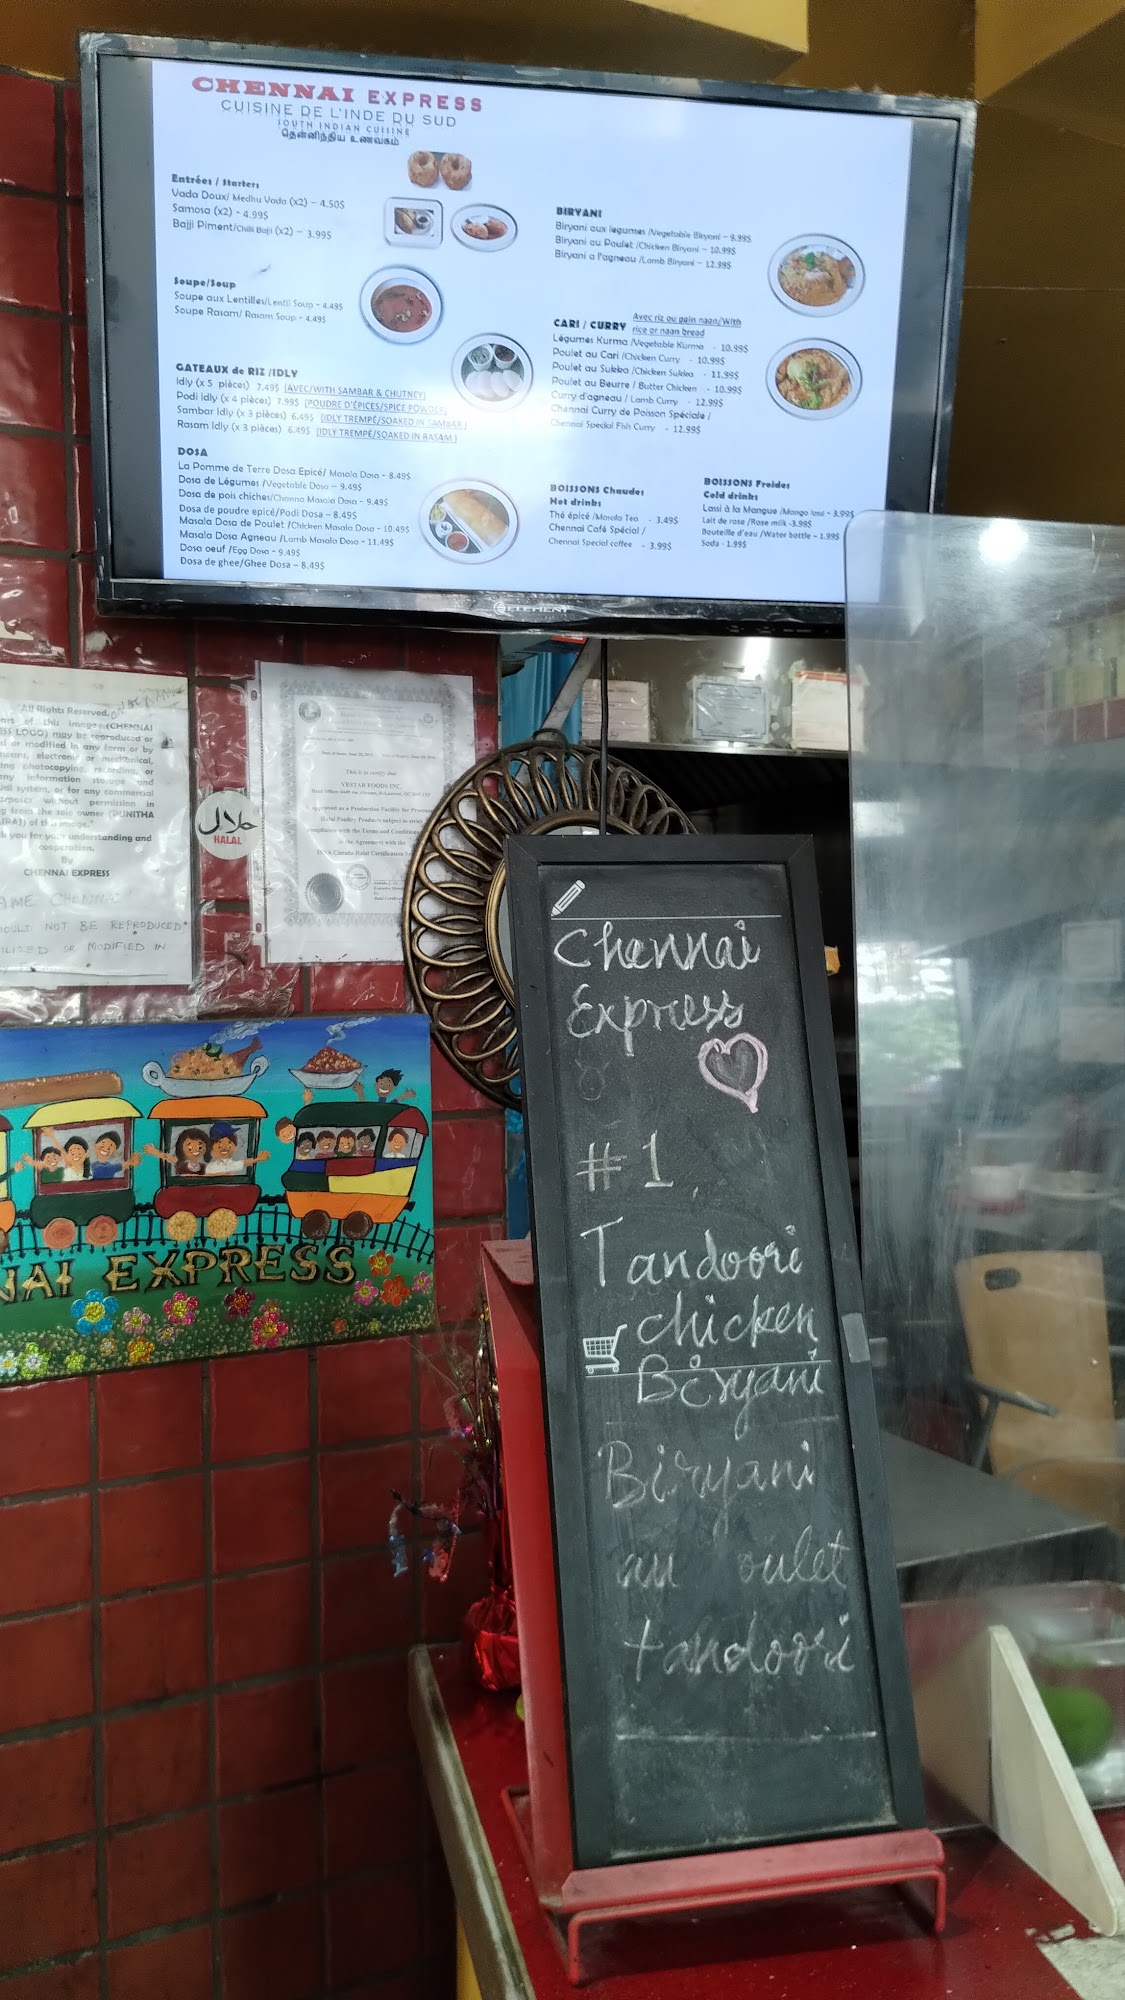 CHENNAI EXPRESS
CUISINE DE L'INDE DU SUD
SOUTH INDIAN CUISINE
தென்னிந்திய உணவகம்
Entrées / Starters
Vada Doux/ Medhu Vada (x2) – 4.50$
Samosa (x2) - 4.99$
Bajji Piment/Chilli Bajji (x2) – 3.99$
Soupe/Soup
Soupe aux Lentilles/Lentil Soup - 4.49$
Soupe Rasam/ Rasam Soup - 4.49$
GATEAUX de RIZ /IDLY
Idly (x 5 pièces) 7.49$ (AVEC/WITH SAMBAR & CHUTNEY)
Podi Idly (x 4 pièces) 7.99$ (POUDRE D'ÉPICES/SPICE POWDER)
Sambar Idly (x 3 pièces) 6.49$ (IDLY TREMPÉ/SOAKED IN SAMBAR )
Rasam Idly (x 3 pièces) 6.49$ (IDLY TREMPÉ/SOAKED IN RASAM )
DOSA
La Pomme de Terre Dosa Epicé/ Masala Dosa - 8.49$
Dosa de Légumes /Vegetable Dosa – 9.49$
Dosa de pois chiches/Channa Masala Dosa - 9.49$
Dosa de poudre epicé/Podi Dosa – 8.49$
Masala Dosa de Poulet /Chicken Masala Dosa - 10.49$
Masala Dosa Agneau /Lamb Masala Dosa – 11.49$
Dosa oeuf /Egg Dosa - 9.49$
Dosa de ghee/Ghee Dosa – 8.49$
BIRYANI
Biryani aux legumes /Vegetable Biryani – 9.99$
Biryani au Poulet /Chicken Biryani – 10.99$
Biryani a l'agneau /Lamb Biryani – 12.99$
CARI / CURRY Avec riz ou pain naan/With
rice or naan bread
Légumes Kurma /Vegetable Kurma - 10.99$
Poulet au Cari /Chicken Curry - 10.99$
Poulet au Sukka /Chicken Sukka - 11.99$
Poulet au Beurre / Butter Chicken - 10.99$
Curry d'agneau / Lamb Curry - 12.99$
Chennai Curry de Poisson Spéciale /
Chennai Special Fish Curry - 12.99$
BOISSONS Chaudes
Hot drinks
Thé épicé /Masala Tea - 3.49$
Chennai Café Spécial /
Chennai Special coffee - 3.99$
BOISSONS Froides
Cold drinks
Lassi à la Mangue /Mango lassi - 3.99$
Lait de rose /Rose milk -3.99$
Bouteille d'eau /Water bottle – 1.99$
Soda - 1.99$
ELEMENT
"All Rights Reserved.
art of this image (CHENNAI
SS LOGO) may be reproduced or
or modified in any form or by
means, electronic or mechanical,
photocopying, recording, or
any information storage and
system, or for any commercial
without permission in
from the sole owner (PUNITHA
of image."
you for your understanding and
cooperation.
By
CHENNAI EXPRESS
AME CHENNAI
OULD NOT BE REPRODUCED
ILIZED OR MODIFIED IN
حلال
HALAL
This is to certify that
VESTAR FOODS INC.
approved as a Production Facility for
Halal Poultry Products subject to strict
compliance with the Terms and Conditions
in the Agreement with the
ISNA Canada Halal Certification
NAI EXPRESS
Chennai
Express
#1
Tandoori
chicken
Biryani
Biryani
au oulet
tandoori